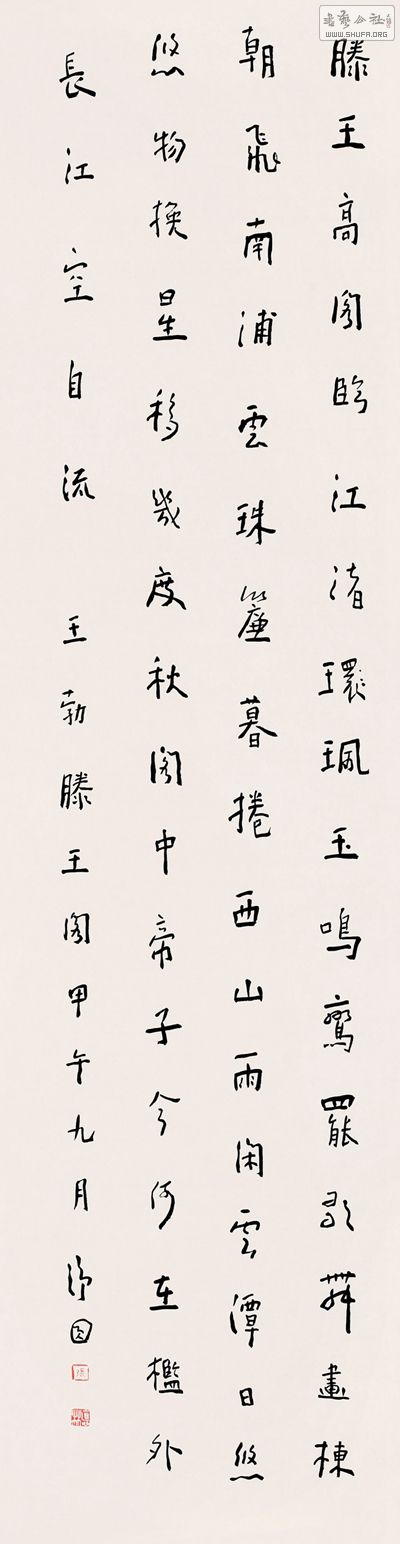 滕王高閣臨江渚環珮玉鳴鸞罷歌舞畫棟
朝飛南浦雲珠簾暮捲西山雨閑雲潭日悠
悠物換星移幾度秋閣中帝子今何在檻外
長江空自流 王勃滕王閣甲午九月
書藝公社
WWW.SHUFA.ORG